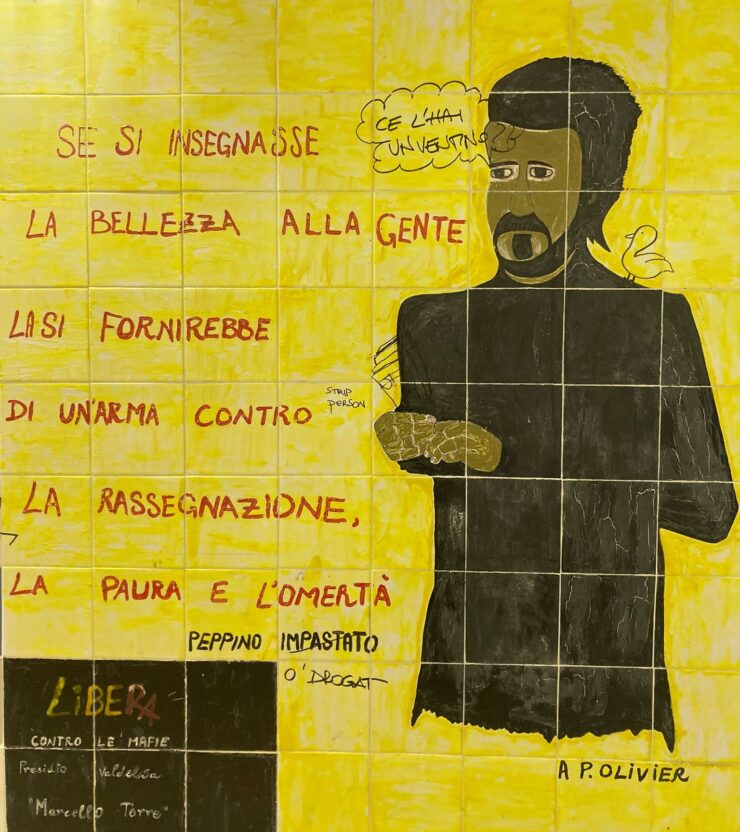 SE SI INSEGNASSE
CE L'HAI
UN VENTINO?
LA BELLEZZA ALLA GENTE
LA SI FORNIREBBE
STRIP
PERSON
DI UN'ARMA CONTRO
LA RASSEGNAZIONE,
LA PAURA E L'OMERTÀ
PEPPINO IMPASTATO
O' DROGAT
LIBERA
CONTRO LE MAFIE
Presidio Valdelsa
"Marcello Torre"
A P. OLIVIER